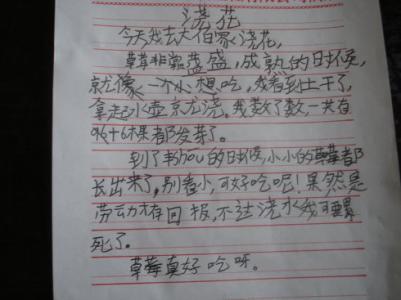 浇花
今天我去大伯家浇花,
草莓非常盛,成熟的日候,
就像一个小想吃,我看到土干了,
拿起水壶京尤浇。我数了数,一共有
棵都发芽了。
到了的时候,小小的草莓都
长出来了,别看小,可好吃呢!果然是
劳动才有回报,不过浇水我可累
死了。
草莓真好吃呀。